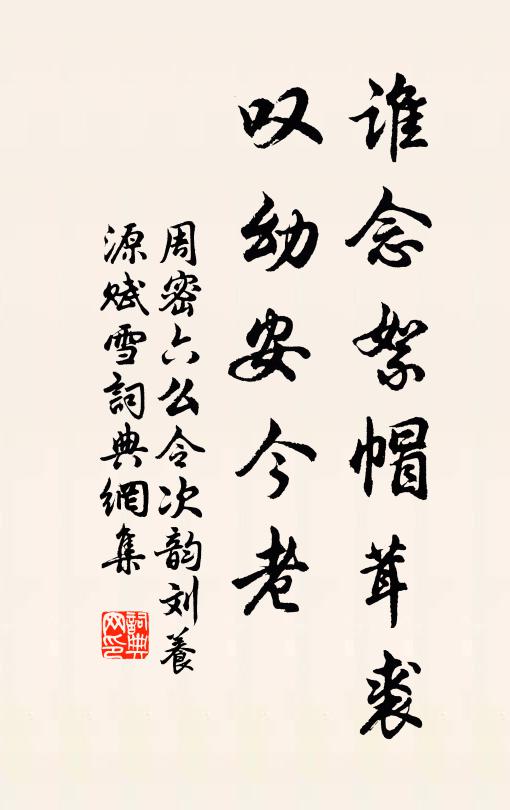 谁念絮帽茸裘
叹幼安今老
周密六么令次韵刘養
源赋雪詞典網集
詞典网印